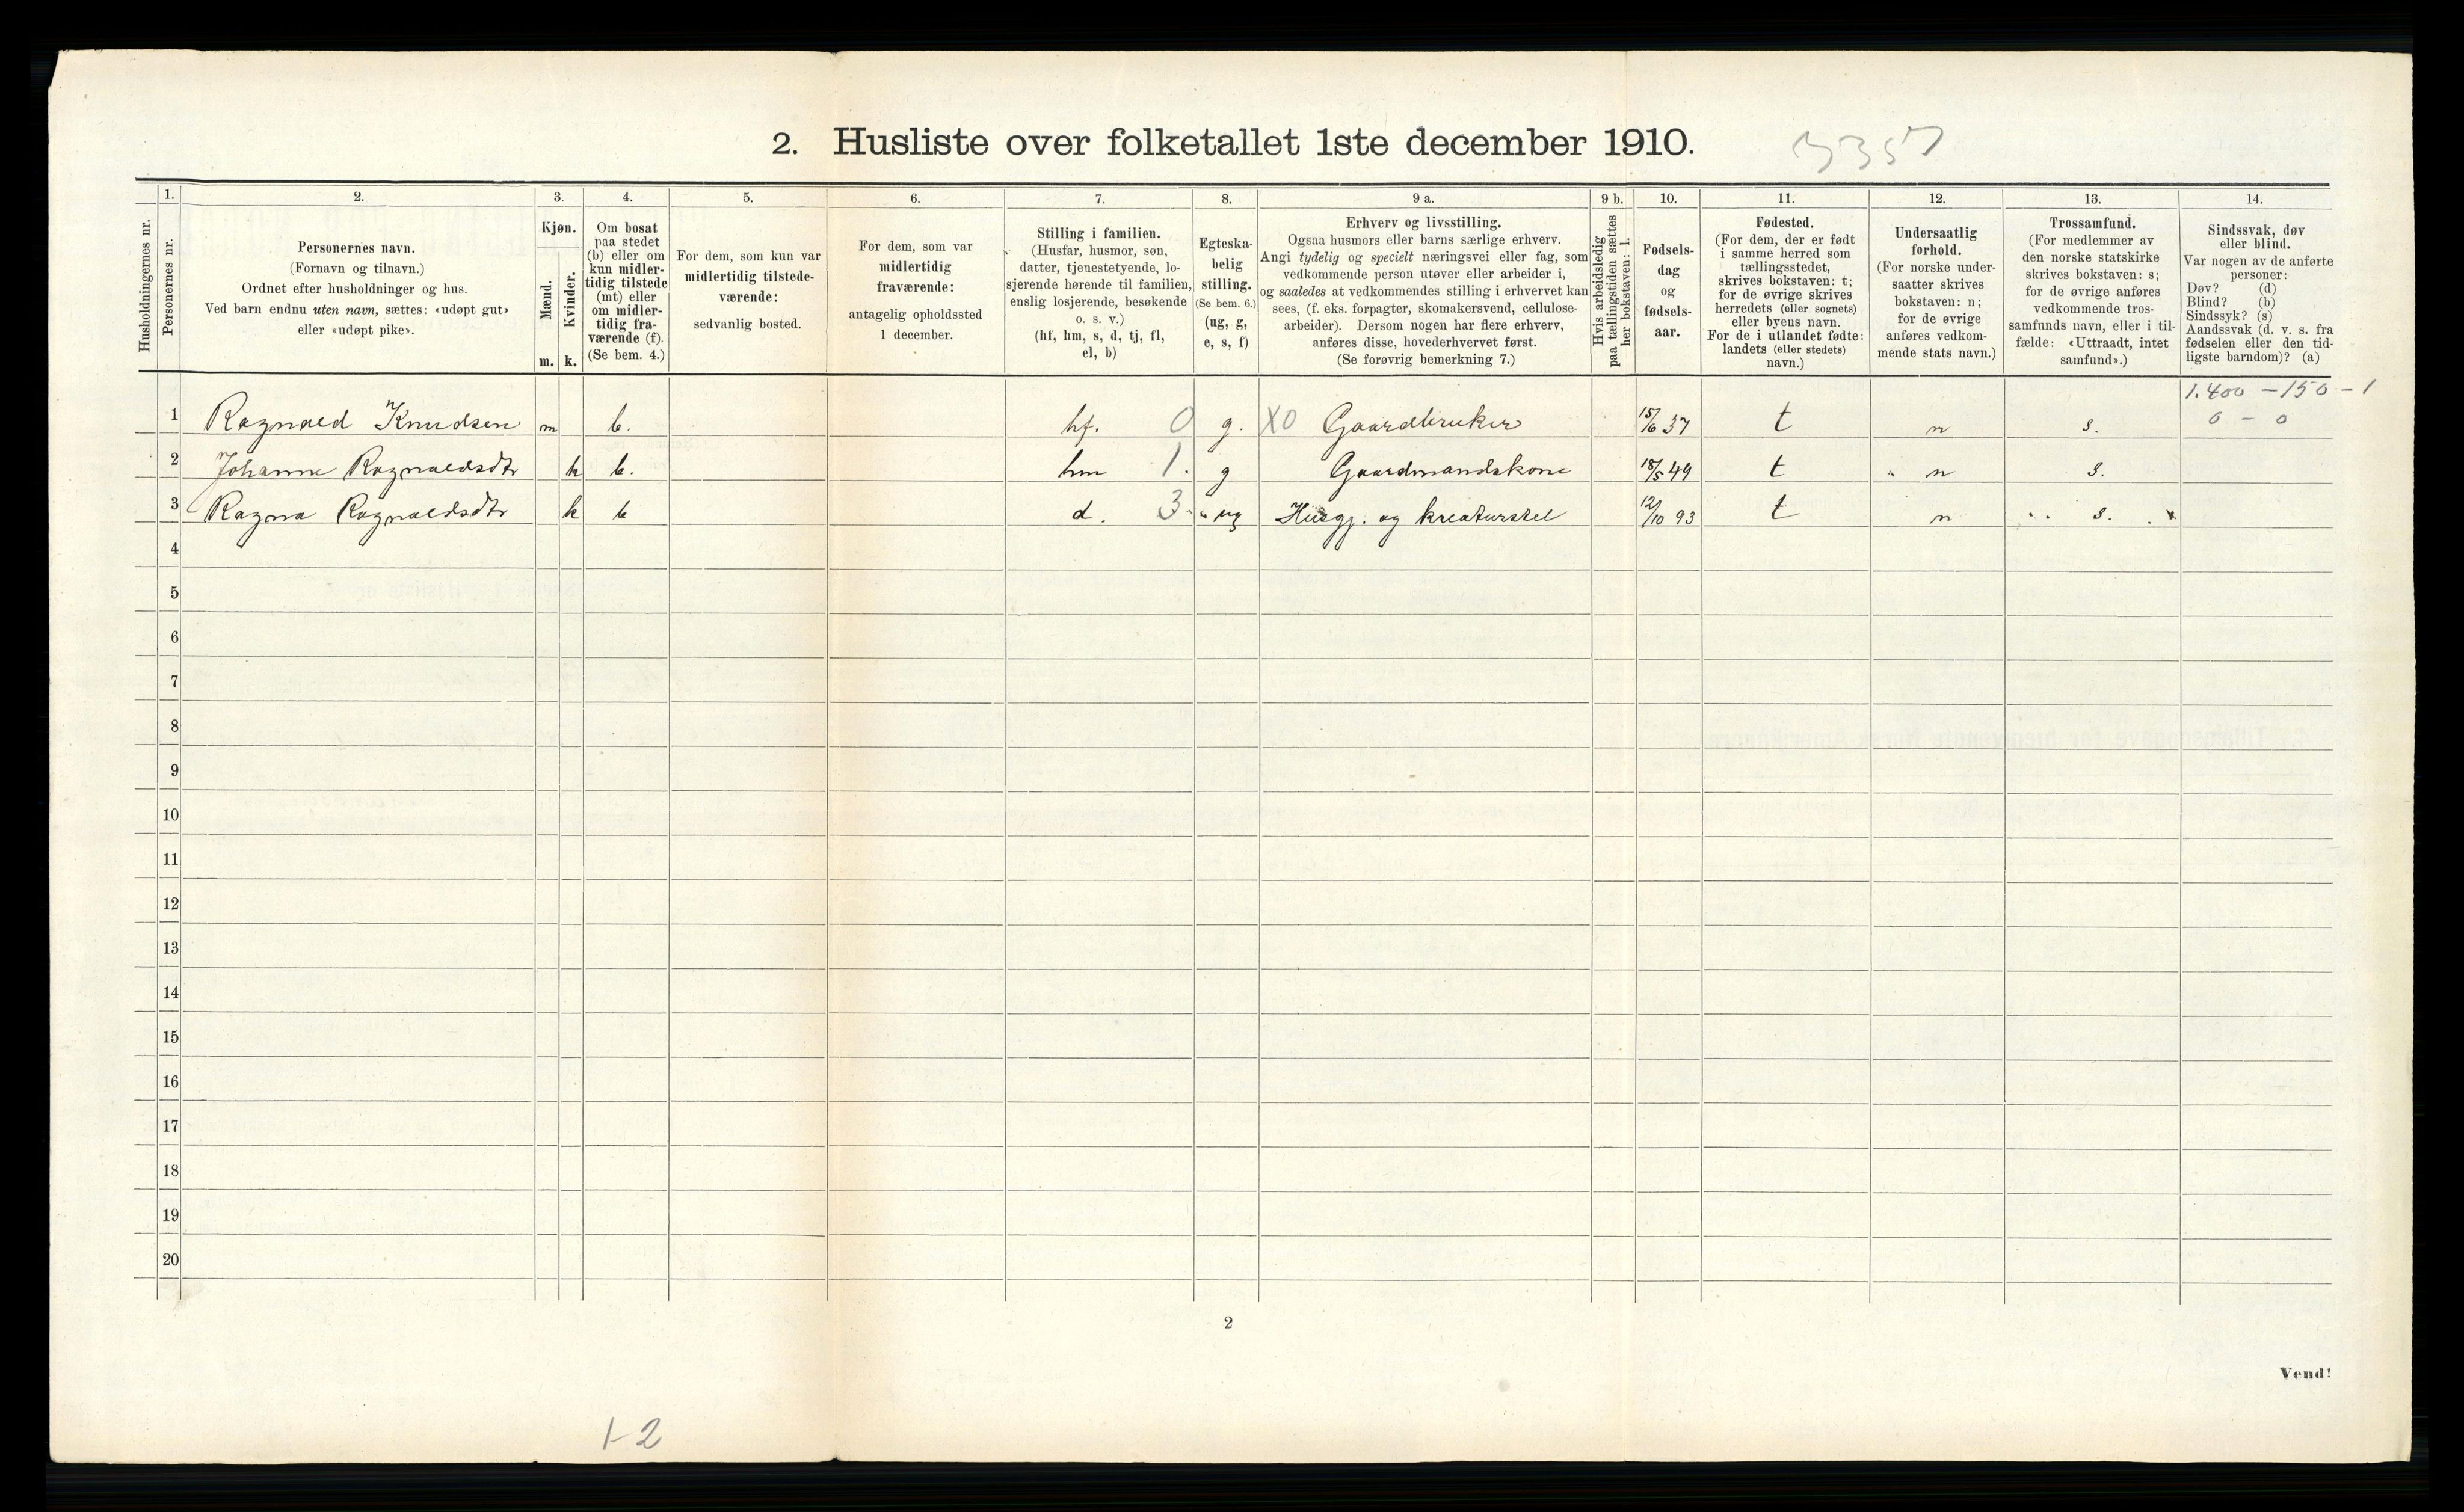 2. Husliste over folketallet 1ste december 1910.
3357
Husholdningernes nr.
1.
Personernes nr.
2.
Personernes navn.
(Fornavn og tilnavn.)
Ordnet efter husholdninger og hus.
Ved barn endnu uten navn, sættes: «udøpt gut»
eller «udøpt pike».
3.
Kjøn.
Mænd.
Kvinder.
m. k.
4.
Om bosat
paa stedet
(b) eller om
kun midler-
tidig tilstede
(mt) eller
om midler-
tidig fra-
værende (f).
(Se bem. 4.)
5.
For dem, som kun var
midlertidig tilstede-
værende:
sedvanlig bosted.
6.
For dem, som var
midlertidig
fraværende:
antagelig opholdssted
1 december.
7.
Stilling i familien.
(Husfar, husmor, søn,
datter, tjenestetyende, lo-
sjerende hørende til familien,
enslig losjerende, besøkende
o. s. v.)
(hf, hm, s, d, tj, fl,
el, b)
8.
Egteska-
belig
stilling.
(Se bem. 6.)
(ug, g,
e, s, f)
9 a.
Erhverv og livsstilling.
Ogsaa husmors eller barns særlige erhverv.
Angi tydelig og specielt næringsvei eller fag, som
vedkommende person utøver eller arbeider i,
og saaledes at vedkommendes stilling i erhvervet kan
sees, (f. eks. forpagter, skomakersvend, cellulose-
arbeider). Dersom nogen har flere erhverv,
anføres disse, hovederhvervet først.
(Se forøvrig bemerkning 7.)
9 b.
Hvis arbeidsledig
paa tællingstiden sættes
her bokstaven: l.
10.
Fødsels-
dag
og
fødsels-
aar.
11.
Fødested.
(For dem, der er født
i samme herred som
tællingsstedet,
skrives bokstaven: t;
for de øvrige skrives
herredets (eller sognets)
eller byens navn.
For de i utlandet fødte:
landets (eller stedets)
navn.)
12.
Undersaatlig
forhold.
(For norske under-
saatter skrives
bokstaven: n;
for de øvrige
anføres vedkom-
mende stats navn.)
13.
Trossamfund.
(For medlemmer av
den norske statskirke
skrives bokstaven: s;
for de øvrige anføres
vedkommende tros-
samfunds navn, eller i til-
fælde: «Uttraadt, intet
samfund».)
14.
Sindssvak, døv
eller blind.
Var nogen av de anførte
personer:
Døv? (d)
Blind? (b)
Sindssyk? (s)
Aandssvak (d. v. s. fra
fødselen eller den tid-
ligste barndom)? (a)
1.400 - 150 - 1
1 Ragnald Knudsen m b. hf. 0 g. X0 Gaardbruker 15/6 37 t n s. 0 - 0
2 Johanne Ragnaldsdtr k b. hm 1. g Gaardmandskone 18/5 49 t n s.
3 Ragna Ragnaldsdtr k b d. 3 ug Husgj. og kreaturstel 12/10 93 t n s.
4
5
6
7
8
9
10
11
12
13
14
15
16
17
18
19
20
2
Vend!
1-2